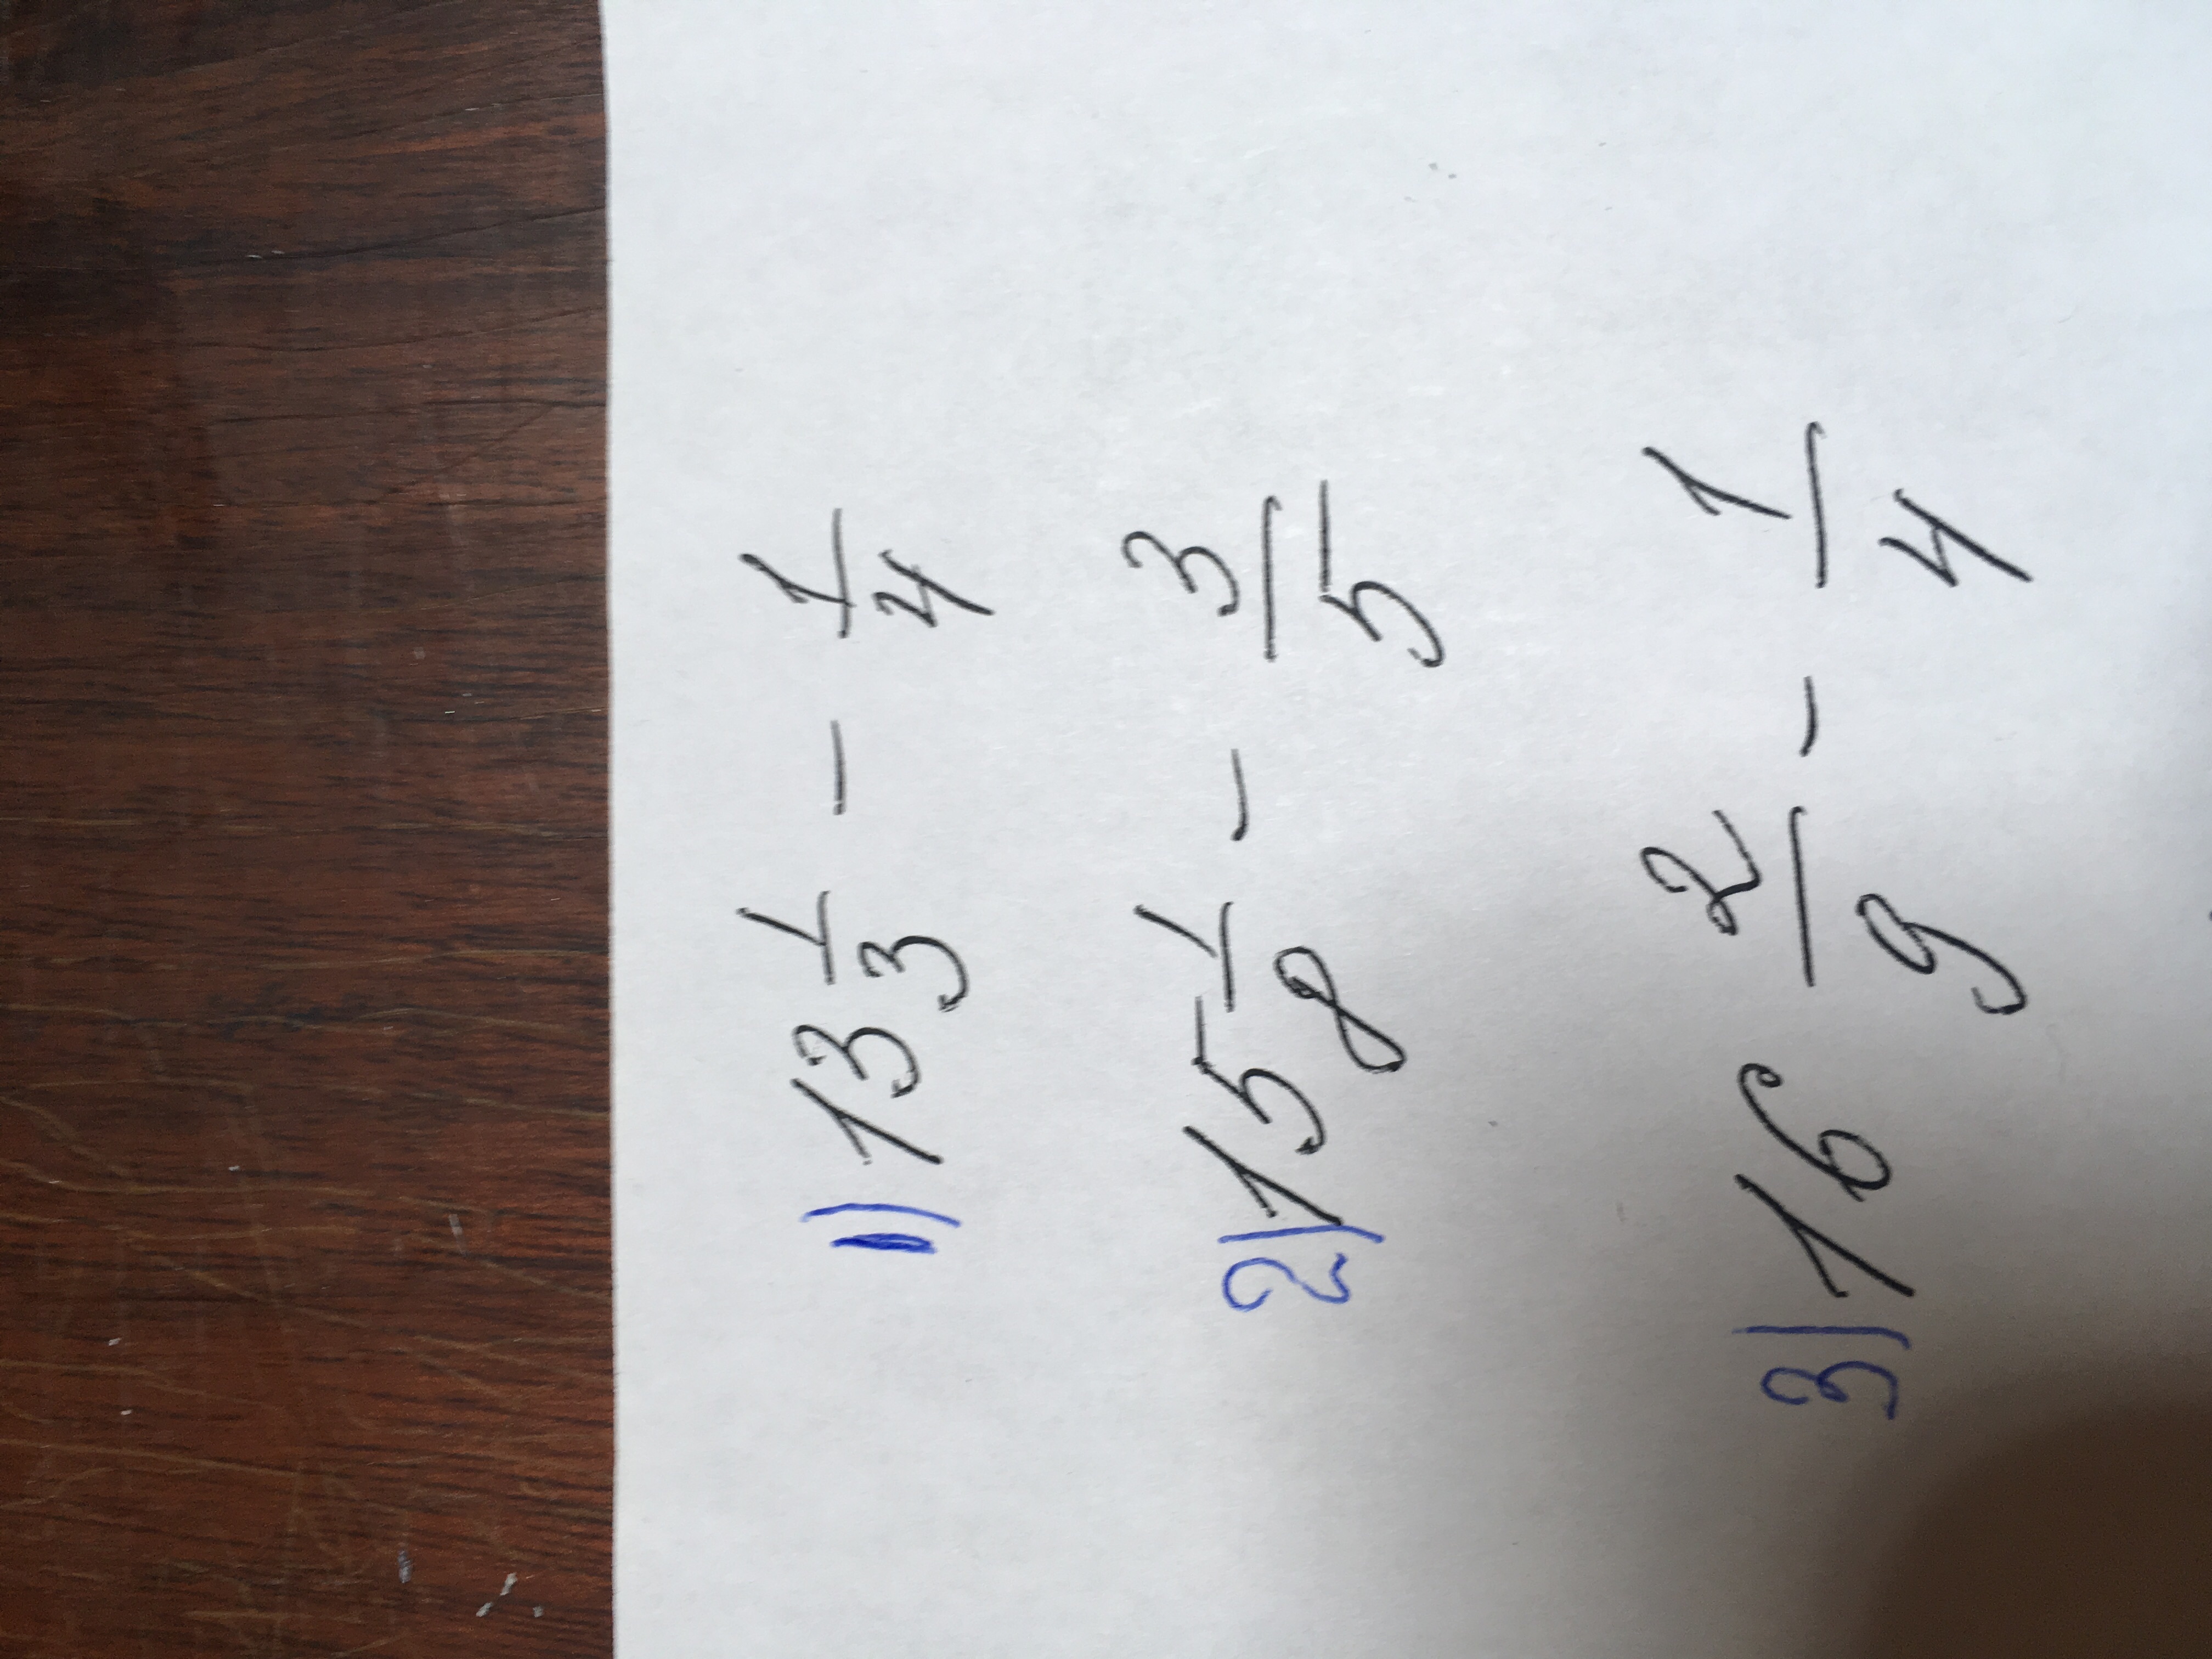 1) 13 1/3 - 1/4
2) 15 1/8 - 3/5
3) 16 2/9 - 1/4